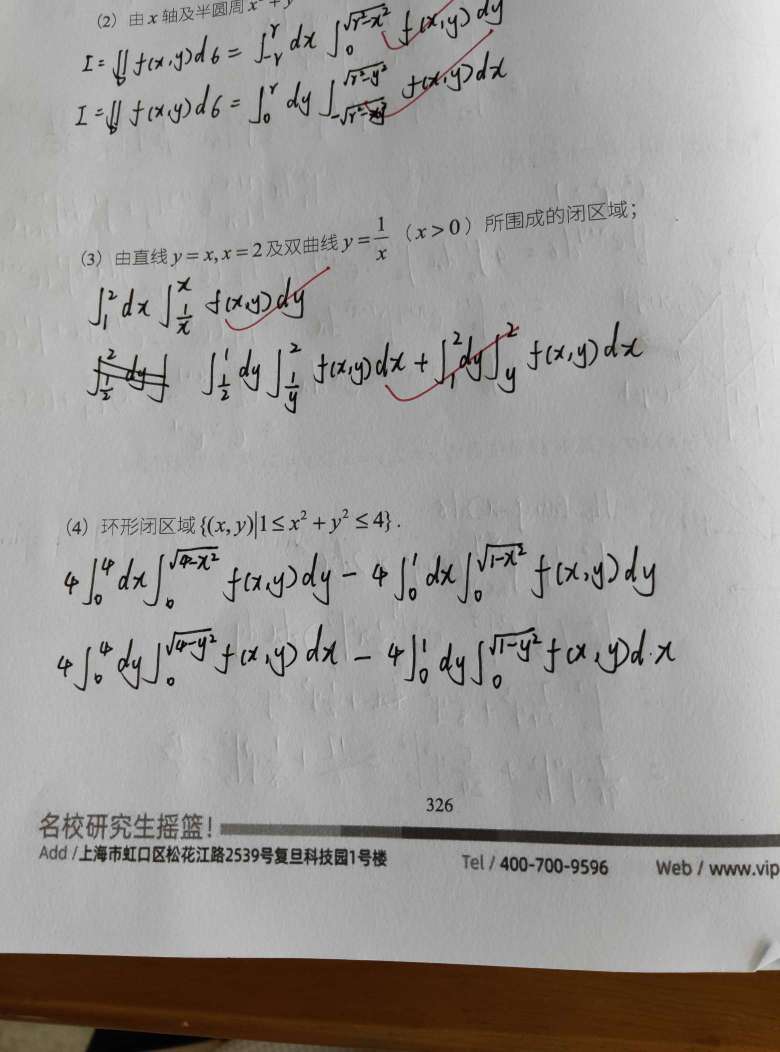 (2) 由 x 轴及半圆周 x² + y
I = ∬_D f(x,y)dσ = ∫_{-r}^{r} dx ∫_0^{√(r²-x²)} f(x,y)dy
I = ∬_D f(x,y)dσ = ∫_0^r dy ∫_{-√(r²-y²)}^{√(r²-y²)} f(x,y)dx
(3) 由直线 y = x, x = 2 及双曲线 y = 1/x (x > 0) 所围成的闭区域;
∫_1^2 dx ∫_{1/x}^x f(x,y)dy
∫_{1/2}^1 dy ∫_{1/y}^2 f(x,y)dx + ∫_1^2 dy ∫_y^2 f(x,y)dx
(4) 环形闭区域 {(x,y)|1 ≤ x² + y² ≤ 4}.
4∫_0^4 dx ∫_0^{√(4-x²)} f(x,y)dy - 4∫_0^1 dx ∫_0^{√(1-x²)} f(x,y)dy
4∫_0^4 dy ∫_0^{√(4-y²)} f(x,y)dx - 4∫_0^1 dy ∫_0^{√(1-y²)} f(x,y)d.x
326
名校研究生摇篮!
Add /上海市虹口区松花江路2539号复旦科技园1号楼 Tel / 400-700-9596 Web / www.vip